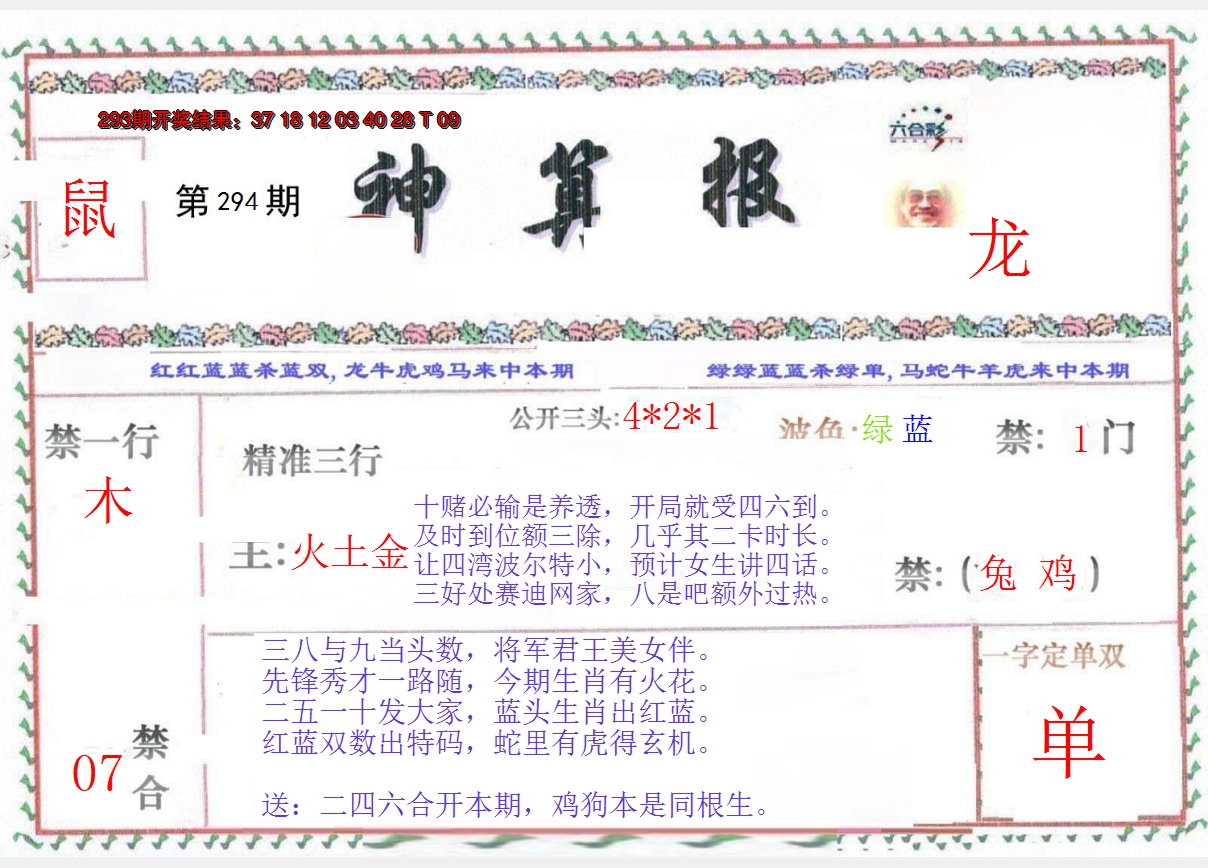 293期开奖结果：37 18 12 03 40 28 T 09
六合彩
鼠
第 294 期
神算报
龙
红红蓝蓝杀蓝双, 龙牛虎鸡马来中本期
绿绿蓝蓝杀绿单, 马蛇牛羊虎来中本期
禁一行
木
精准三行
公开三头:4*2*1
波色·绿 蓝
禁：1 门
主:火土金
十赌必输是养透，开局就受四六到。
及时到位额三除，几乎其二卡时长。
让四湾波尔特小，预计女生讲四话。
三好处赛迪网家，八是吧额外过热。
禁:（兔 鸡）
07
禁合
三八与九当头数，将军君王美女伴。
先锋秀才一路随，今期生肖有火花。
二五一十发大家，蓝头生肖出红蓝。
红蓝双数出特码，蛇里有虎得玄机。
送：二四六合开本期，鸡狗本是同根生。
一字定单双
单